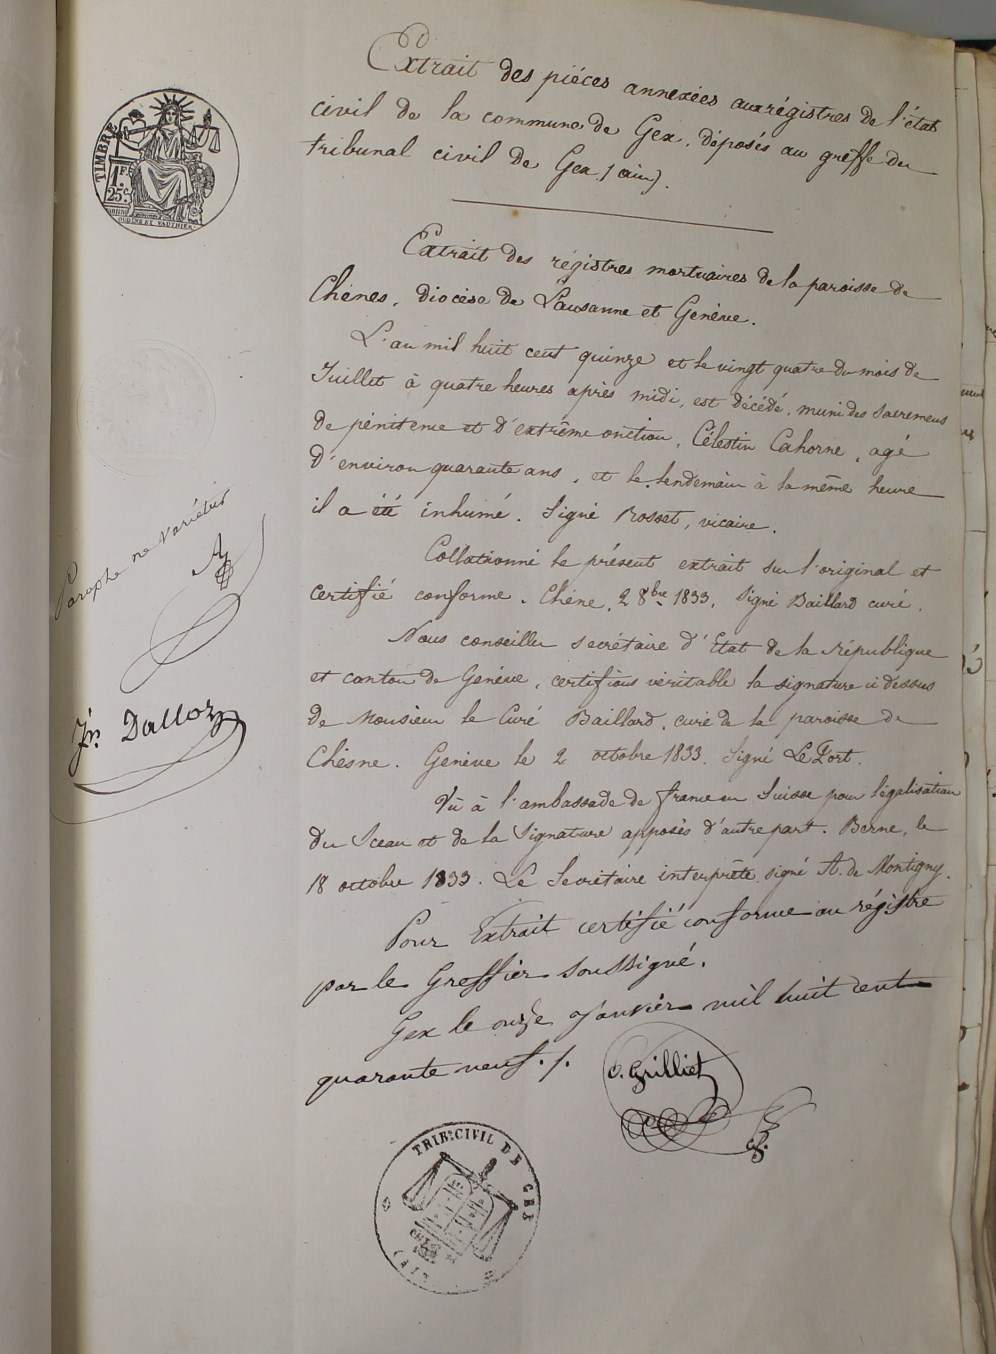 Extrait des piéces annexées aux régistres de l'état
civil de la commune de Gex, déposés au greffe du
tribunal civil de Gex (ain).
TIMBRE
1F.
25c.
Extrait des régistres mortuaires de la paroisse de
Chênes, diocèse de Lausanne et Genève.
L'an mil huit cent quinze et le vingt quatre du mois de
Juillet à quatre heures après midi, est décédé, muni des sacremens
de pénitence et d'extrême onction, Célestin Cahorne, agé
d'environ quarante ans, et le lendemain à la même heure
il a été inhumé. Signé Rosset, vicaire.
Paraphé ne variétur
Collationné le présent extrait sur l'original et
certifié conforme. Chêne, 2 8bre 1833. Signé Baillard curé.
Nous conseiller secrétaire d'Etat de la république
et canton de Genève, certifions véritable la signature ci dessus
Jn. Dalloz
de Monsieur le Curé Baillard, curé de la paroisse de
Chêsne. Genève le 2 octobre 1833. Signé Le Fort.
Vû à l'ambassade de france en Suisse pour légalisation
du Sceau et de la Signature apposés d'autre part. Berne, le
18 octobre 1833. Le Secrétaire interprête signé A. de Montigny.
Pour Extrait certifié conforme au régistre
par le Greffier soussigné.
Gex le onze Janvier mil huit cent
quarante neuf. /.
O. Grilliet
TRIB. CIVIL DE GEX
(AIN)